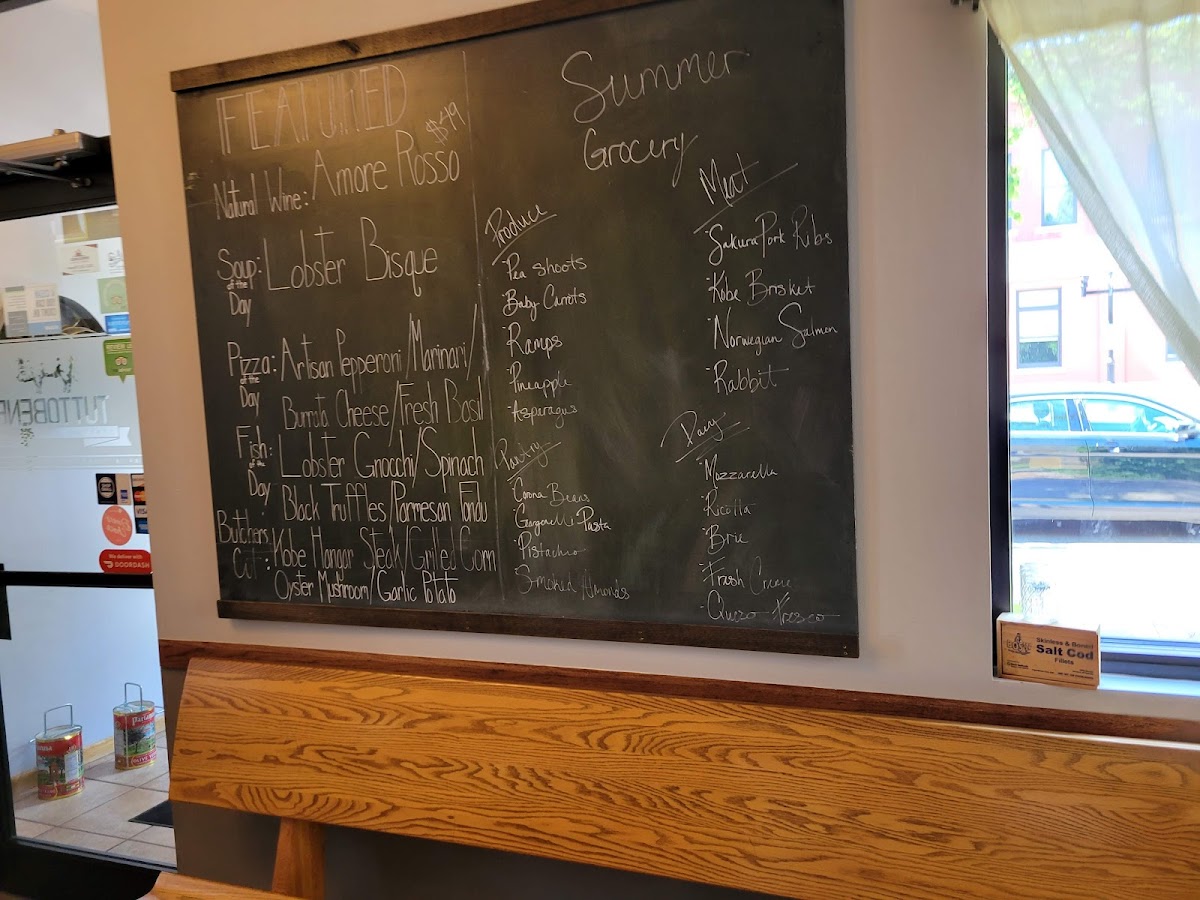 FEATURED
$49
Natural Wine: Amore Rosso
Soup of the Day: Lobster Bisque
Pizza of the Day: Artisan Pepperoni/Marinari/
Burrata Cheese/Fresh Basil
Fish of the Day: Lobster Gnocchi/Spinach
Black Truffles/Parmesan Fondu
Butchers Cut: Kobe Hangar Steak/Grilled Corn
Oyster Mushroom/Garlic Potato
Summer
Grocery
Produce
Pea shoots
Baby Carrots
Ramps
Pineapple
Asparagus
Pantry
Corona Beans
Garganelli Pasta
Pistachio
Smoked Almonds
Meat
Sakura Pork Ribs
Kobe Brisket
Norwegian Salmon
Rabbit
Dairy
Mozzarella
Ricotta
Brie
Fresh Creme
Queso Fresco
Skinless & Boneless
Salt Cod
Fillets
TUTTOBENE
VISA
We deliver with
DOORDASH